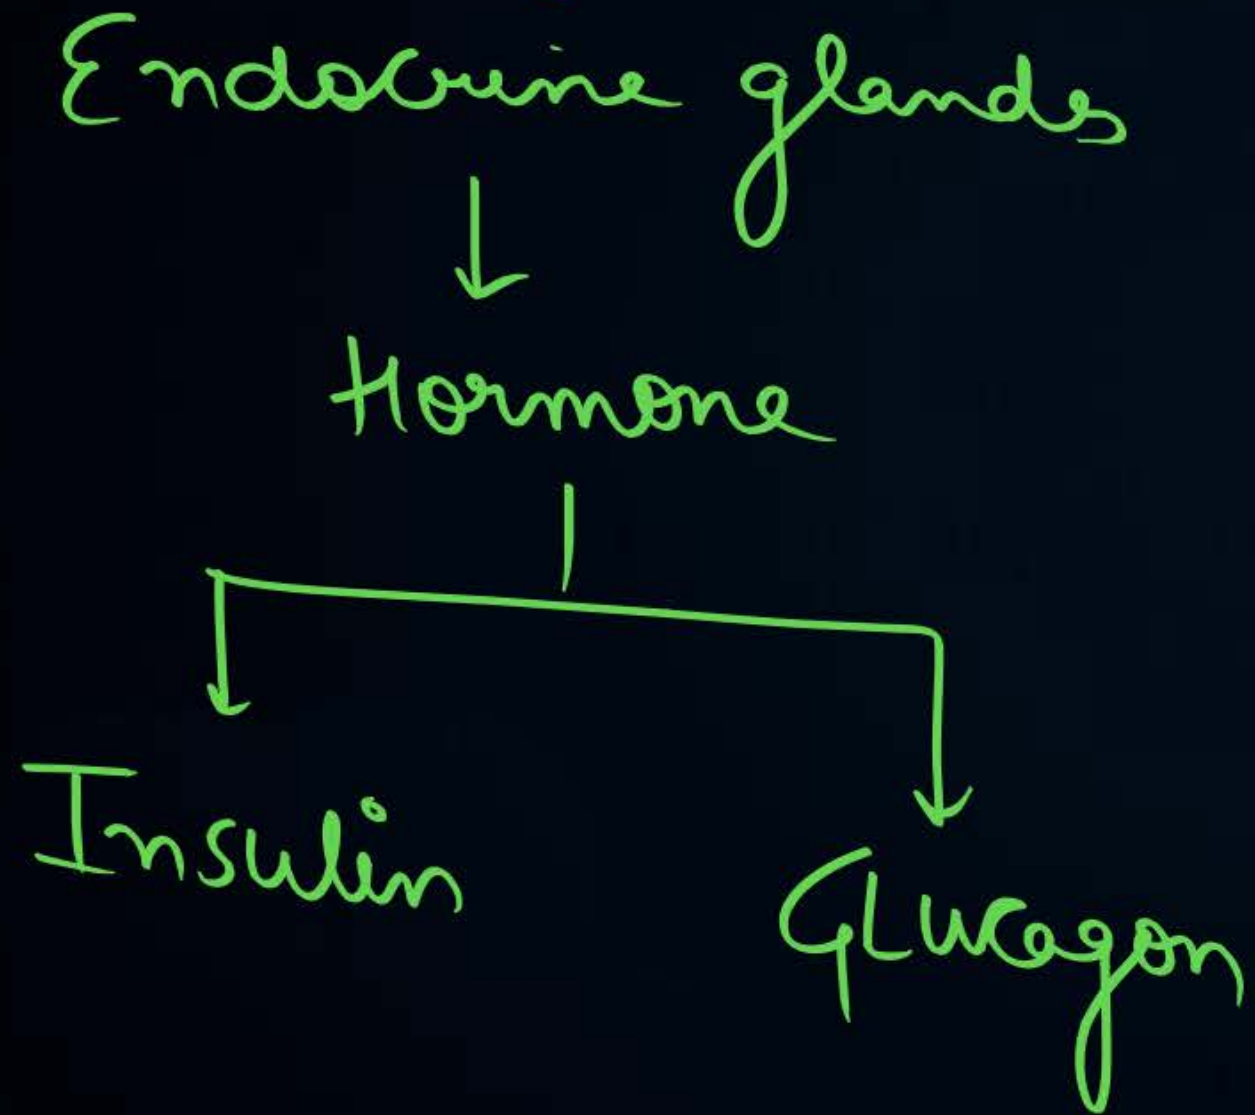 Endocrine glands
Hormone
Insulin
Glucagon